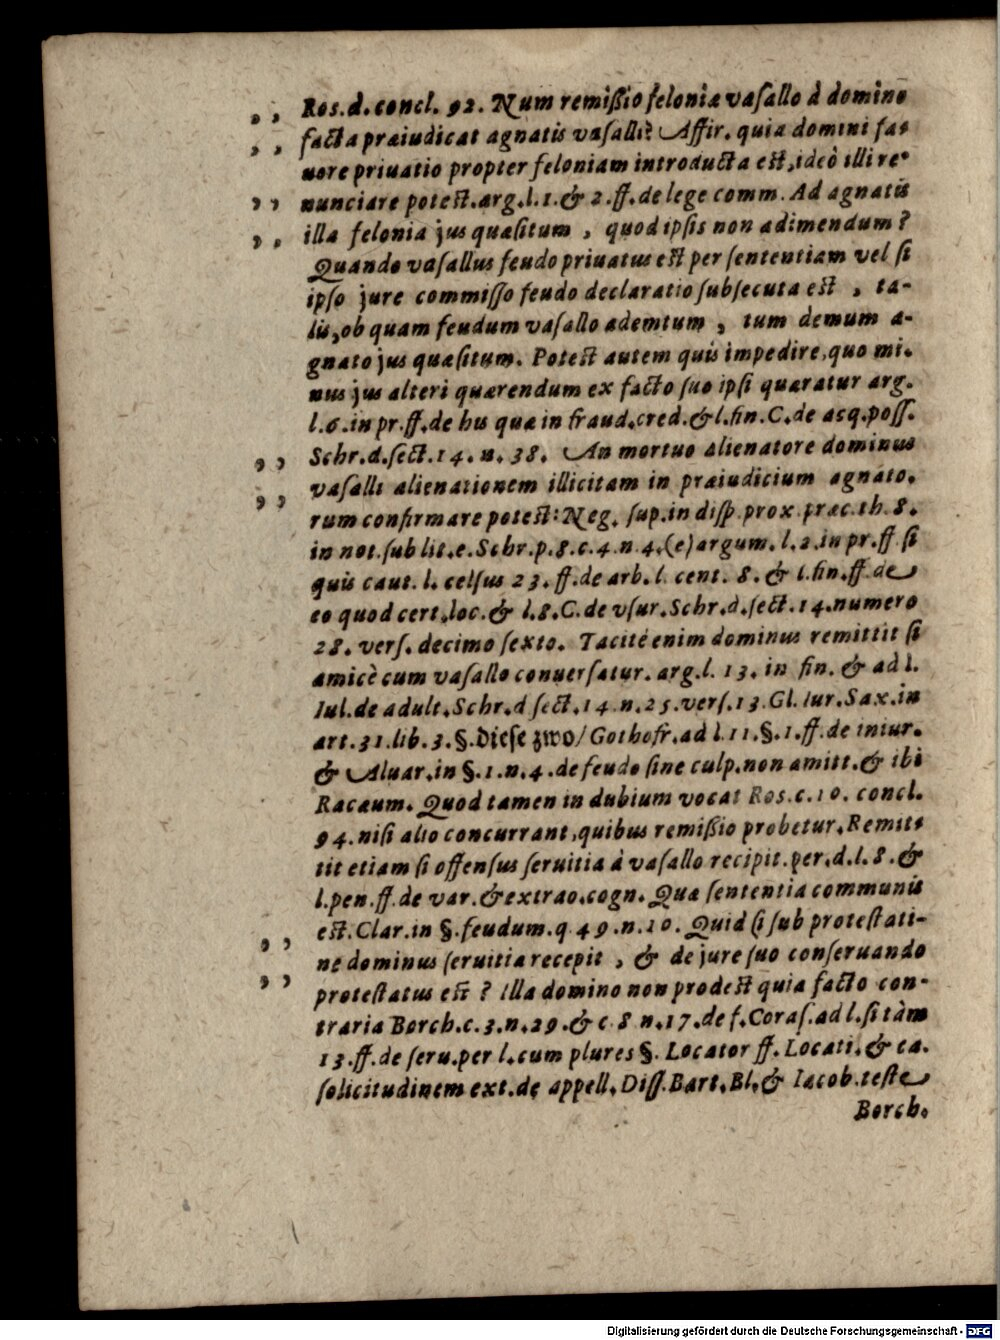 Ros.d.concl. 92. Num remißio feloniæ vaſallo à domino
facta præiudicat agnatis vaſalli? Affir. quia domini fa-
uore priuatio propter feloniam introducta eſt, ideò illi re-
nunciare poteſt. arg. l. 1. & 2. ff. de lege comm. Ad agnatis
illa felonia jus quæſitum, quod ipſis non adimendum?
Quando vaſallus feudo priuatus eſt per ſententiam vel ſi
ipſo jure commiſſo feudo declaratio ſubſecuta eſt, ta-
lis, ob quam feudum vaſallo ademtum, tum demum a-
gnato jus quæſitum. Poteſt autem quis impedire, quo mi-
nus jus alteri quærendum ex facto ſuo ipſi quæratur arg.
l. 6. in pr. ff. de his quæ in fraud. cred. & l. fin. C. de acq. poſſ.
Schr. d. ſect. 14. n. 38. An mortuo alienatore dominus
vaſalli alienationem illicitam in præiudicium agnato-
rum confirmare poteſt: Neg. ſup. in diſp. prox. præc. th. 8.
in not. ſub lit. e. Schr. p. 8. c. 4. n. 4. (e) argum. l. 2. in pr. ff. ſi
quis caut. l. celſus 23. ff. de arb. l. cent. 8. & l. fin. ff. de
eo quod cert. loc. & l. 8. C. de vſur. Schr. d. ſect. 14. numero
28. verſ. decimo ſexto. Tacitè enim dominus remittit ſi
amicè cum vaſallo conuerſatur. arg. l. 13. in fin. & ad l.
Iul. de adult. Schr. d ſect. 14. n. 25. verſ. 13. Gl. Iur. Sax. in
art. 31. lib. 3. §. dieſe zwo/ Gothofr. ad l. 11. §. 1. ff. de iniur.
& Aluar. in §. 1. n. 4. de feudo ſine culp. non amitt. & ibi
Racæum. Quod tamen in dubium vocat Ros. c. 10. concl.
94. niſi alio concurrant, quibus remißio probetur. Remit-
tit etiam ſi offenſus ſeruitia à vaſallo recipit. per. d. l. 8. &
l. pen. ff. de var. & extrao. cogn. Quæ ſententia communis
eſt. Clar. in §. feudum. q. 49. n. 10. Quid ſi ſub proteſtati-
ne dominus ſeruitia recepit, & de jure ſuo conſeruando
proteſtatus eſt? Illa domino non prodeſt quia facto con-
traria Borch. c. 3. n. 29. & c 8 n. 17. de f. Coraſ. ad l. ſi tàm
13. ff. de ſeru. per l. cum plures §. Locator ff. Locati. & ca.
ſolicitudinem ext. de appell. Diſſ. Bart. Bl. & Iacob. teſte
Borch.
Digitalisierung gefördert durch die Deutsche Forschungsgemeinschaft - DFG